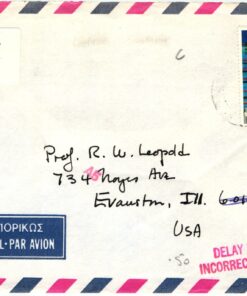 Prof. R. W. Leopold
734 Noyes Ave
Evanston, Ill.
USA
ΠΟΡΙΚΩΣ
L-PAR AVION
DELAY
INCORREC
.50